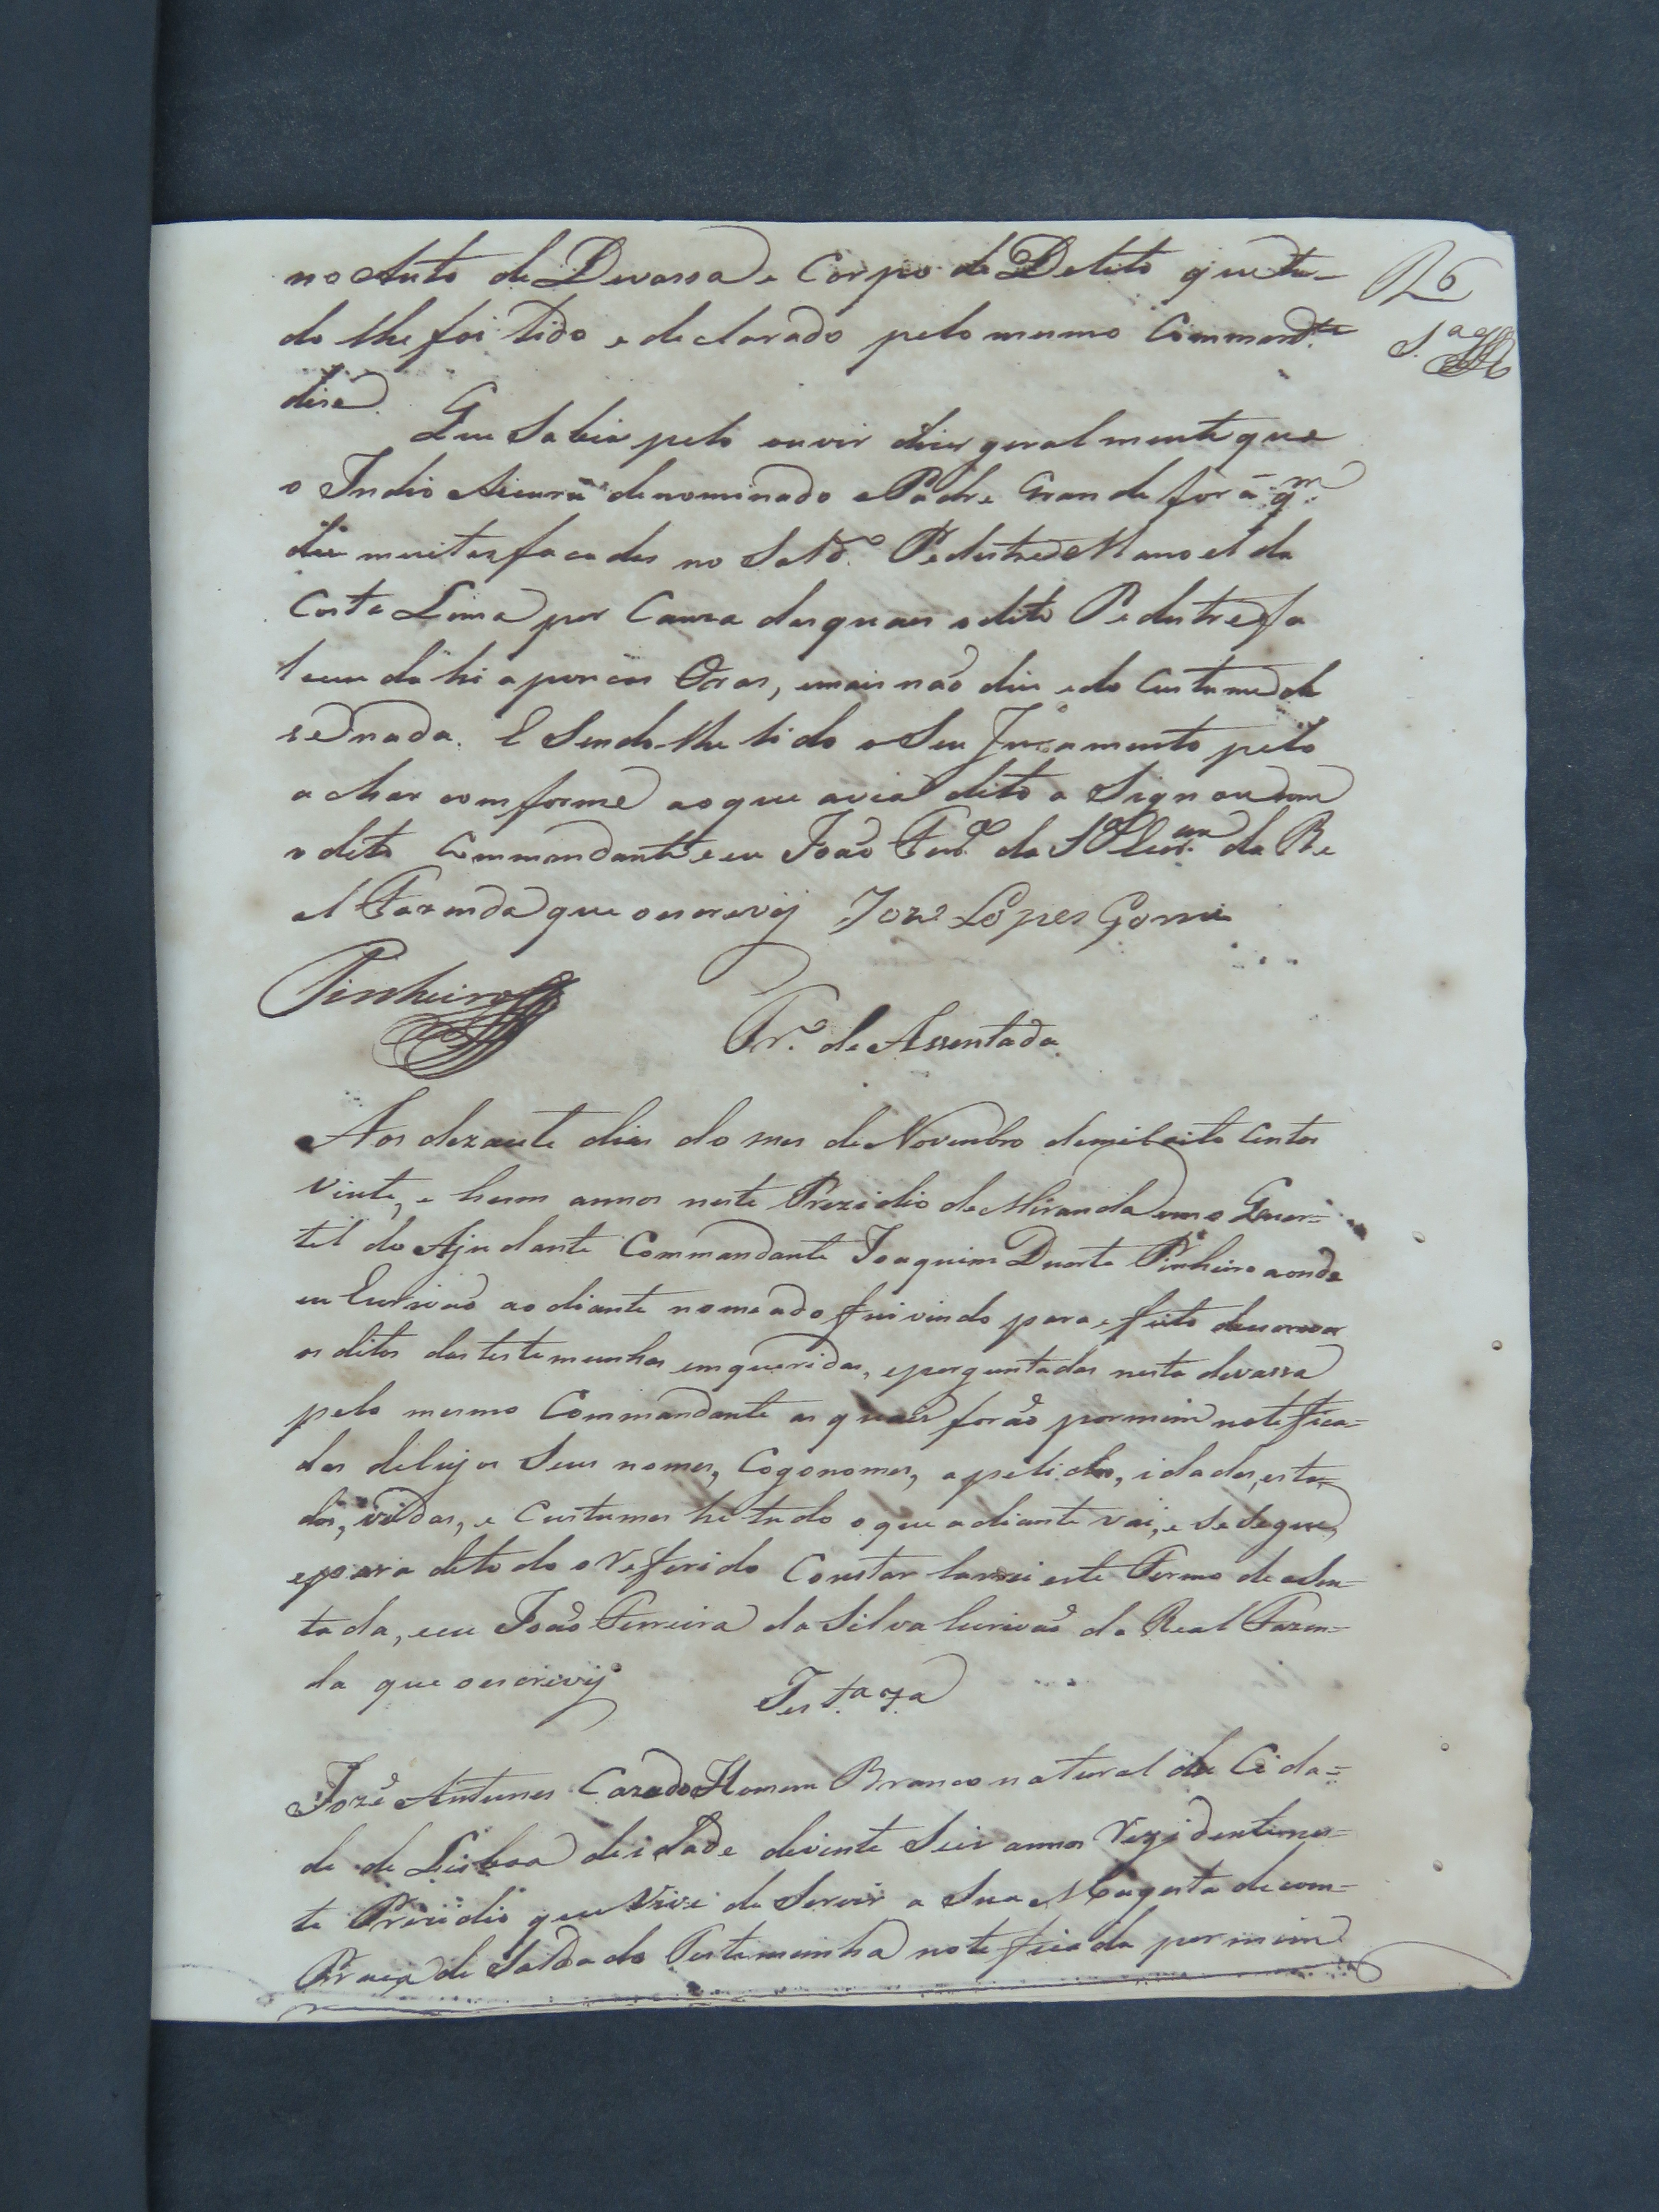 no Auto de Devassa e Corpo de Delito que tu-
do lhe foi lido e declarado pelo mesmo Command.te
dise
Que Sabia pelo ouvir dizer geralmente que
o Indio denominado Padre Grande fora q.m
deu muitas facadas no Sold.o Pedestre Manoel da
Costa Lima por Cauza das quaes o dito Pedestre fa
leceu dahi a poucas Oras, e mais não dise e do Custume di
se nada. E Sendo-lhe lido o Seu Juramento pelo
achar comforme ao que avia dito a Signou com
o dito Commandante e eu João Ferr.a da S.a Escr.am da Re
al Fazenda que o escrevij Joze Lopes Gomes
Pinheiro
Tr.o de Assentada
Aos dezasete dias do mes de Novembro de mil oito Centos
Vinte, e hum annos neste Prezidio de Miranda em o Quar-
tel do Ajudante Commandante Joaquim Duarte Pinheiro aonde
eu Escrivão ao diante nomeado fui vindo para efeito de escrever
os ditos das testemunhas emqueridas, e perguntadas nesta devassa
pelo mesmo Commandante as quaes forão por mim notefica-
das de cujos Seus nomes, Cogonomes, apelidos, idades, esta-
dos, vidas, e Custumes he tudo o que adiante vai, e se segue,
e para de todo o referido Constar lavrei este Termo de asen-
tada, e eu João Ferreira da Silva Escrivão da Real Fazen-
da que o escrevij
Tes.ta 7.a
Jozé Antunes Cazado Homem Branco natural da Cida-
de de Lisboa de idade de vinte Seis annos Rezidente nes-
te Prezidio que Vive de Servir a Sua Magestade com
Praça de Soldado Testemunha noteficada por mim